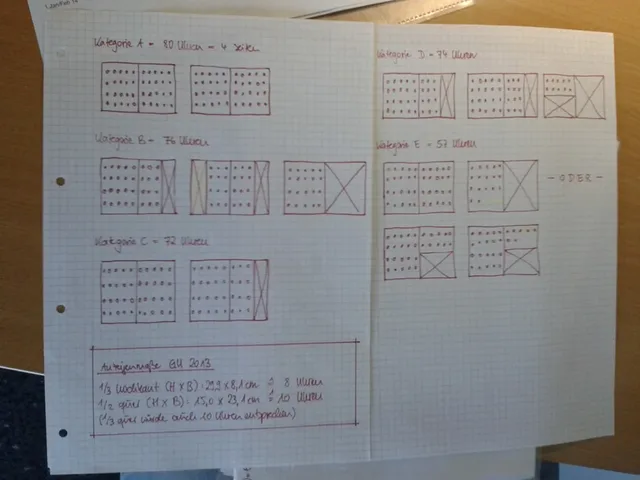 Kategorie A = 80 Uhren = 4 Seiten
Kategorie B = 76 Uhren
Kategorie C = 72 Uhren
Kategorie D = 74 Uhren
Kategorie E = 57 Uhren
- ODER -
Anzeigenmaße GU 2013
1/3 hochkant (H x B): 29,9 x 8,1 cm ≙ 8 Uhren
1/2 quer (H x B): 15,0 x 23,1 cm ≙ 10 Uhren
(1/3 quer würde auch 10 Uhren entsprechen)